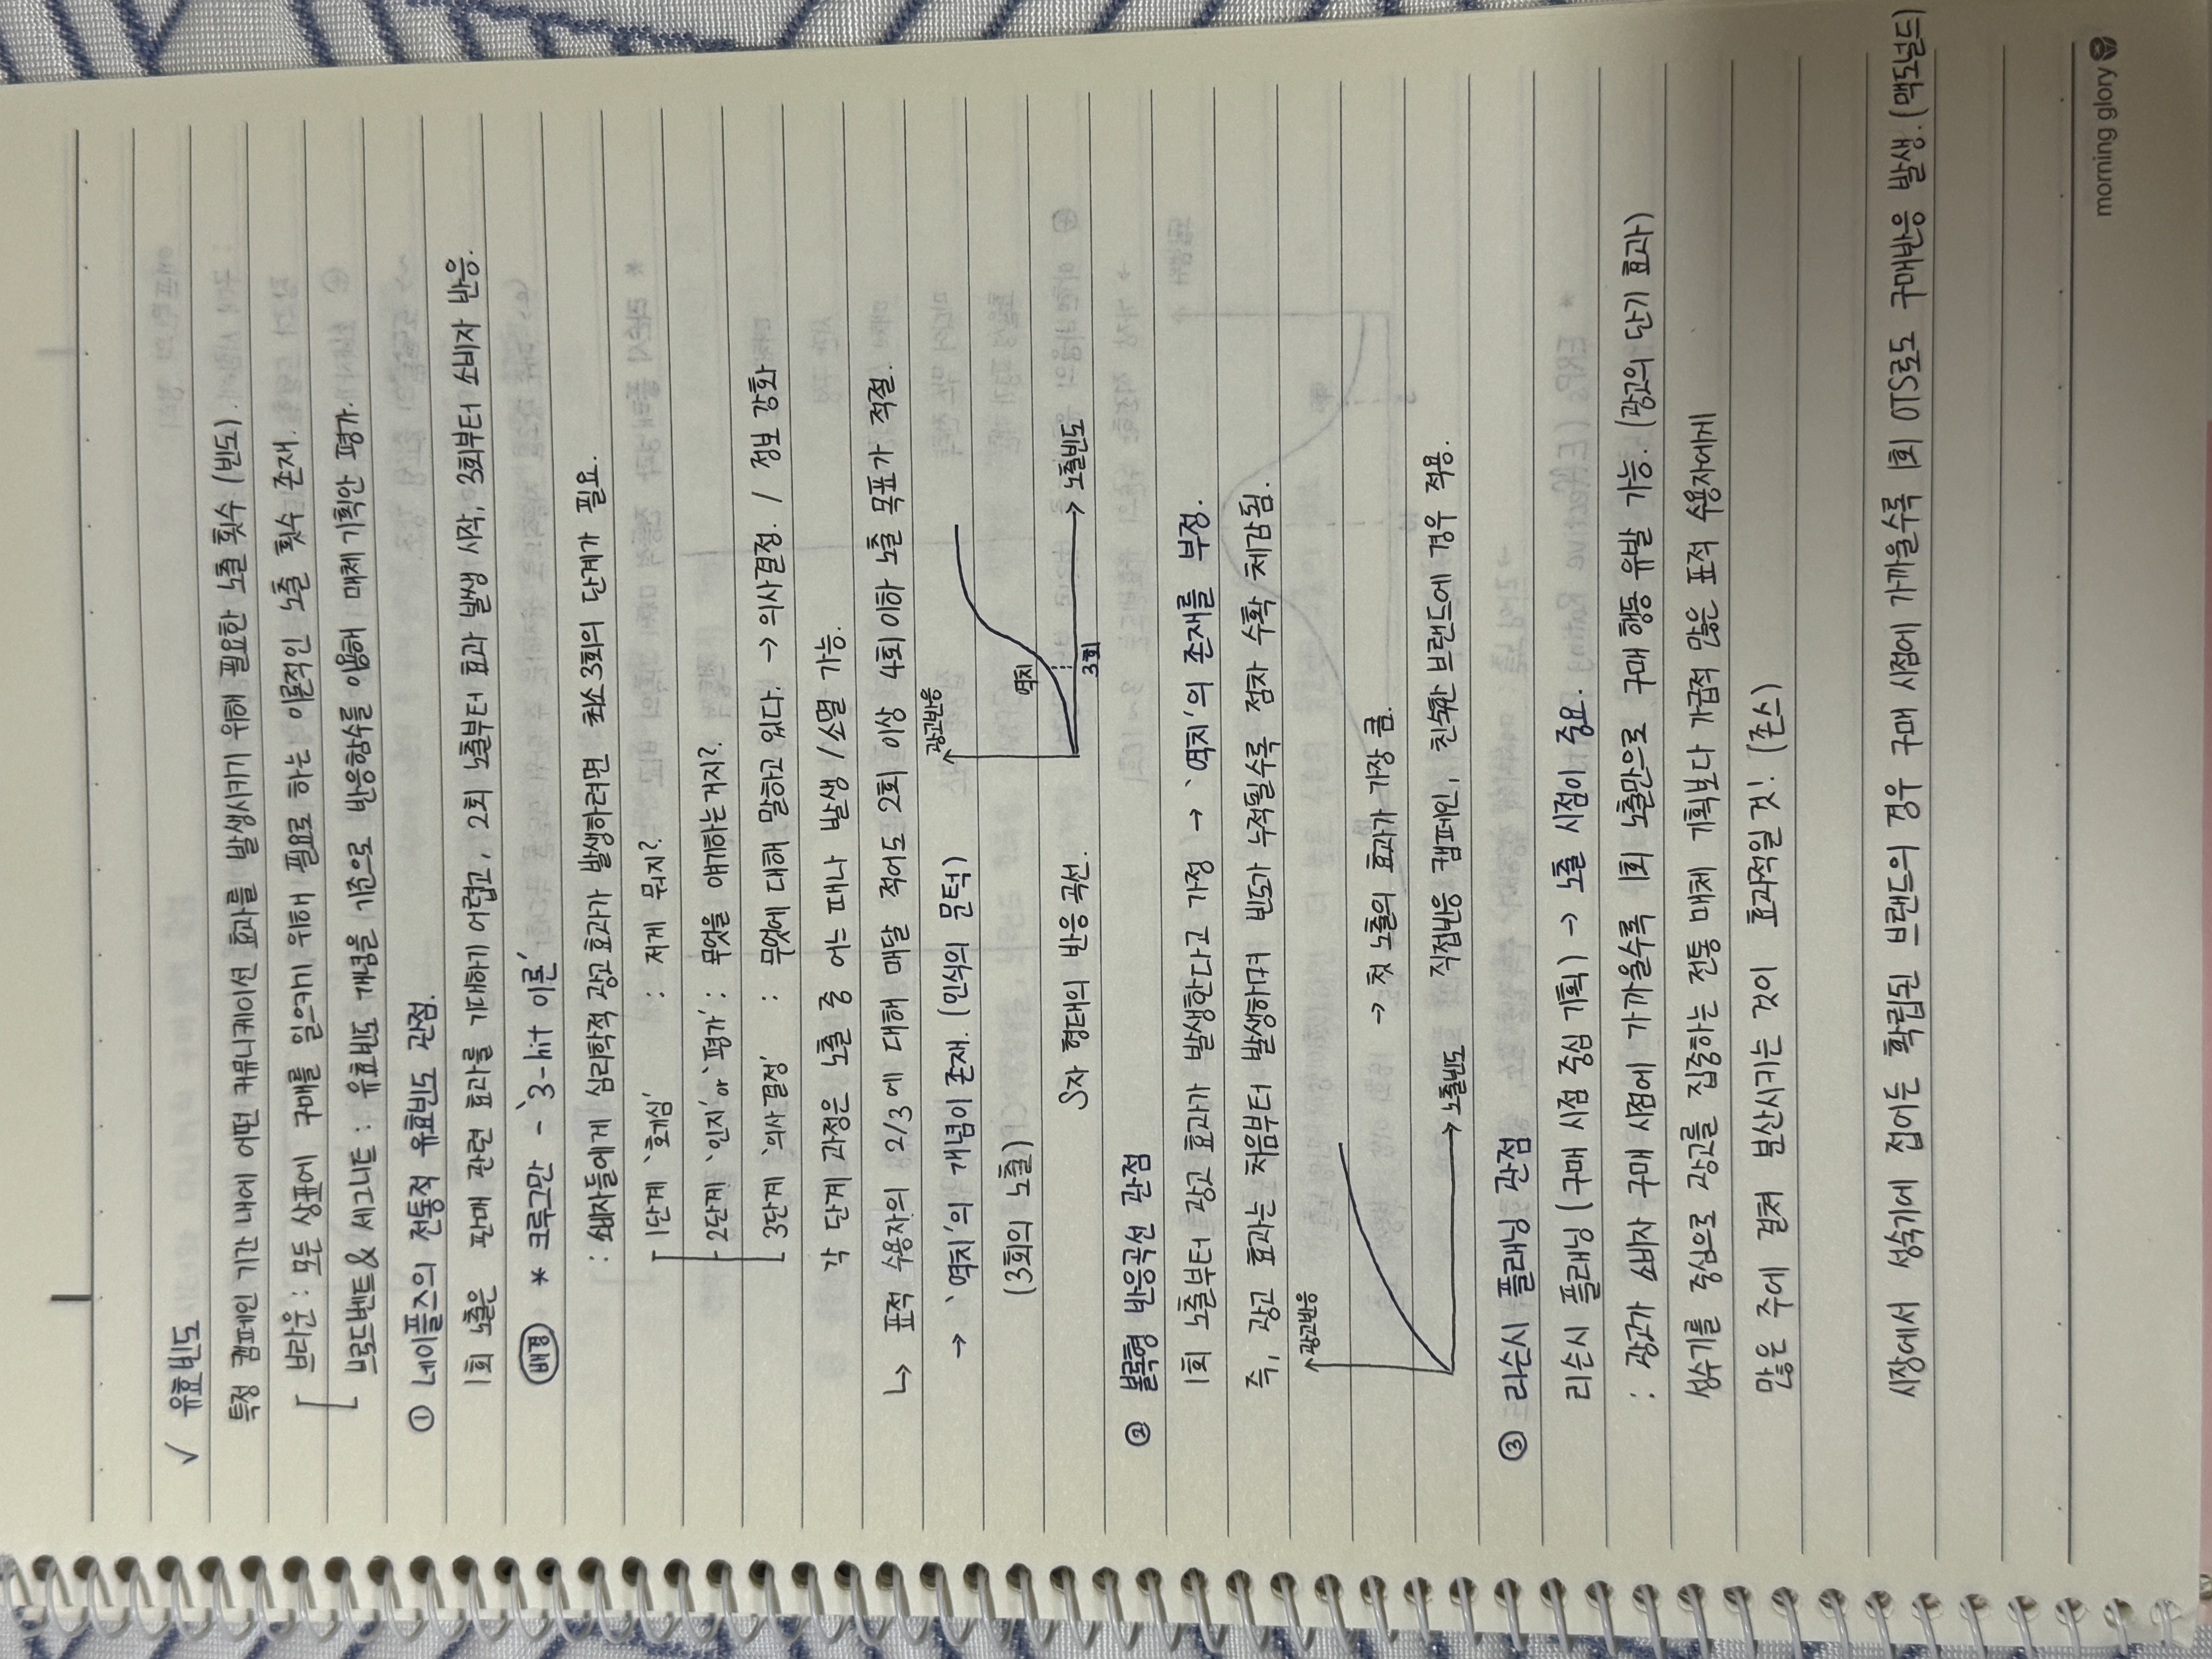 ✓ 유효빈도
특정 캠페인 기간 내에 어떤 커뮤니케이션 효과를 발생시키기 위해 필요한 노출 횟수 (빈도).
브라운 : 모든 상표에 구매를 일으키기 위해 필요로 하는 이론적인 노출 횟수 존재.
브로드벤트 & 세그니트 : 유효빈도 개념을 기준으로 반응함수를 이용해 매체 기획안 평가.
① 네이플스의 전통적 유효빈도 관점.
1회 노출은 판매 관련 효과를 기대하기 어렵고, 2회 노출부터 효과 발생 시작, 3회부터 소비자 반응.
배경 * 크루그만 - '3-hit 이론'
: 소비자들에게 심리학적 광고 효과가 발생하려면 최소 3회의 단계가 필요.
1단계 '호기심' : 저게 뭐지?
2단계 '인지' or '평가' : 무엇을 얘기하는 거지?
3단계 '의사결정' : 무엇에 대해 말하고 있다. → 의사결정. / 정보 강화
각 단계 과정은 노출 중 어느 때나 발생 / 소멸 가능.
↳ 표적 수용자의 2/3에 대해 매달 적어도 2회 이상 4회 이하 노출 목표가 적절.
→ '역치'의 개념이 존재. (인식의 문턱)
(3회의 노출)
광고반응
역치
3회
노출빈도
S자 형태의 반응 곡선.
② 볼록형 반응곡선 관점
1회 노출부터 광고 효과가 발생한다고 가정 → '역치'의 존재를 부정.
즉, 광고 효과는 처음부터 발생하며 빈도가 누적될수록 점차 수확 체감됨.
광고반응
노출빈도
→ 첫 노출의 효과가 가장 큼.
직접반응 캠페인, 친숙한 브랜드에 경우 적용.
③ 리슨시 플래닝 관점
리슨시 플래닝 (구매 시점 중심 기획) → 노출 시점이 중요.
: 광고가 소비자 구매 시점에 가까울수록 1회 노출만으로 구매 행동 유발 가능. (광고의 단기 효과)
성수기를 중심으로 광고를 집중하는 전통 매체 기획보다 가급적 많은 표적 수용자에게
많은 주에 걸쳐 분산시키는 것이 효과적일 것! (존스)
시장에서 성숙기에 접어든 확립된 브랜드의 경우 구매 시점에 가까울수록 1회 OTS로도 구매반응 발생. (맥도널드)
morning glory